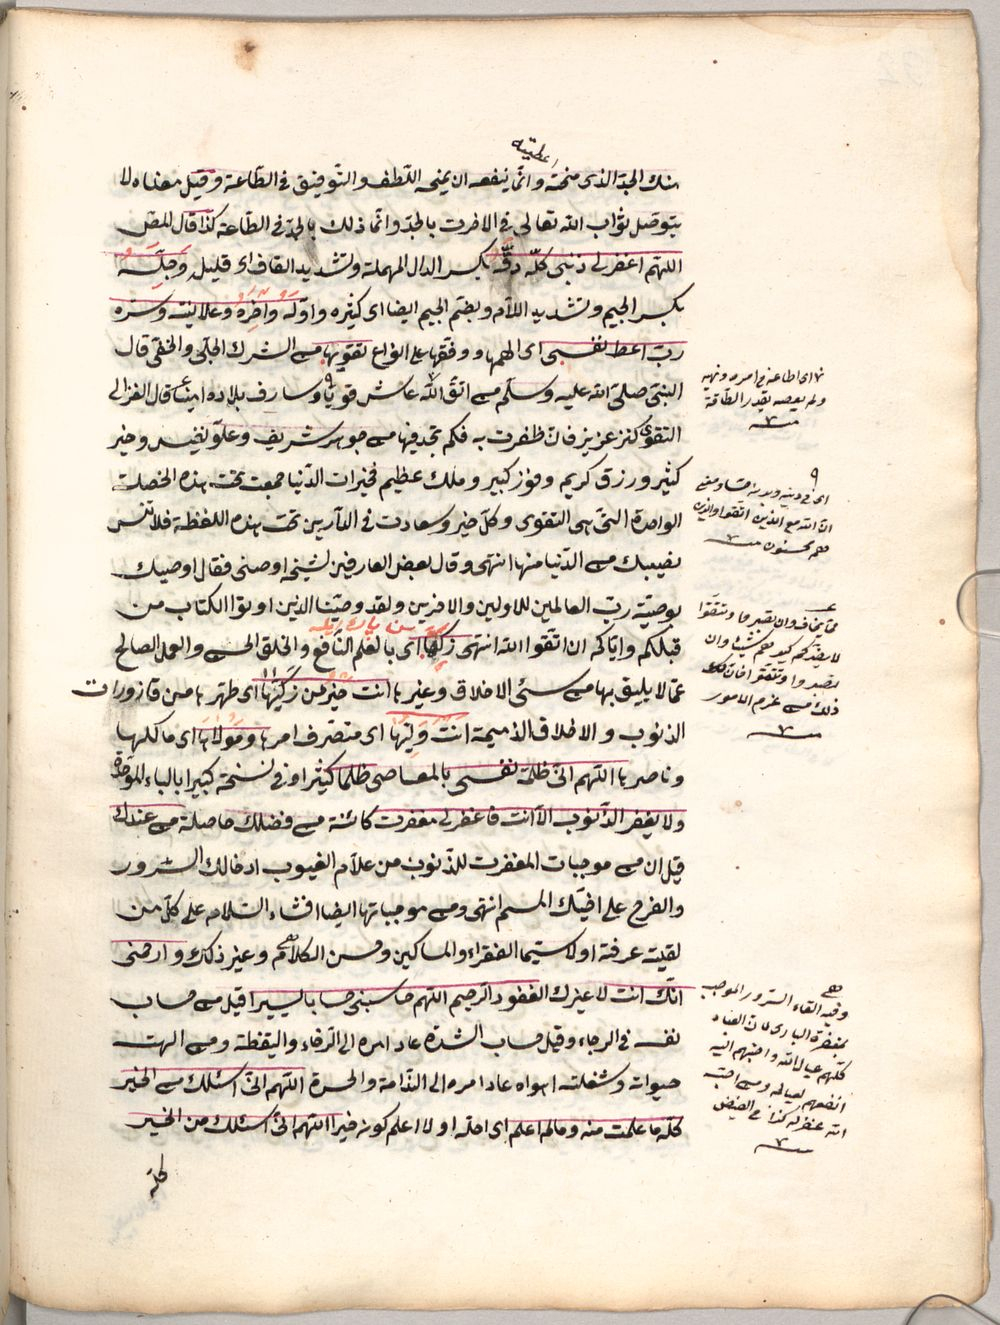 اعطيته
منك الجد الذى منحته وانما ينفعه ان يمنحه اللطف والتوفيق فى الطاعة وقيل معناه لا
يتوصل ثواب الله تعالى فى الاخرت بالجد وانما ذلك بالجد فى الطاعة كذا قال المص
اللهم اغفر لى ذنبى كله دقه بكسر الدال المهملة وتشديد القاف اى قليله وجله
بكسر الجيم وتشديد اللام وبضم الجيم ايضا اى كثيره واوله واخره وعلانيته وسره
رب اعط نفسى اى الهمها ووفقها على انواع تقويها من الشرك الجلى والخفى قال
النبى صلى الله عليه وسلم من اتق الله عاش قويا وسار فى بلاده امينا قال الغزالى
التقوى كنز عزيز فان ظفرت به فكم تجد فيها من جوهر شريف وعلو نفيس وخير
كثير ورزق كريم وفوز كبير وملك عظيم فخيرات الدنيا جمعت تحت هذه الخصلت
الواحدة التى هى التقوى وكل خير وسعادت فى الدارين تحت هذه اللفظة فلا تنس
نصيبك من الدنيا منها انتهى وقال بعض العارفين لشيخه اوصنى فقال اوصيك
بوصية رب العالمين للاولين والاخرين ولقد وصينا الذين اوتوا الكتاب من
قبلكم واياكم ان اتقوا الله انتهى زكها اى بالعلم النافع والخلق الحسن والعمل الصالح
عما لا يليق بها من سئ الاخلاق وغيرها انت خير من زكيها اى طهرها من قاذورات
الذنوب والاخلاق الذميمة انت وليها اى متصرف امرها ومولاها اى مالكها
وناصرها اللهم انى ظلمت نفسى بالمعاصى ظلما كثيرا وفى نسخة كبيرا بالباء الموحدة
ولا يغفر الذنوب الا انت فاغفر لى مغفرت كائنة من فضلك حاصلة من عندك
قيل ان من موجبات المغفرت للذنوب من علام الغيوب ادخالك السرور
والفرح على اخيك المسلم انتهى ومن موجباتها ايضا افشاء السلام على كل من
لقيته عرفته اولا سيما الفقراء والمساكين وحسن الكلام وغير ذلك وارحمنى
انك انت لا غيرك الغفور الرحيم اللهم حاسبنى حسابا يسيرا قيل من حاسب
نفسه فى الرجاء وقيل حساب الشدة عاد امره الى الرفاء واليقظة ومن الهت
حيوات وشغلته اهواه عاد امره الى الندامة والحسرة اللهم انى اسئلك من الخير
كله ما علمت منه وما لم اعلم اى اصله اولا اعلم كونه خيرا اللهم انى اسئلك من الخير
كله
اى اطاعة فى امره ونهيه
ولم يعصه بقدر الطاقة
ان الله مع الذين اتقوا والذين
هم محسنون
وان تصبروا وتتقوا
لا يضركم كيدهم شيئا وان
تصبروا وتتقوا فان ذلك
من عزم الامور
وفيه القاء السرور الموجب
بمغفرة البارى
كلهم عيال الله واحبهم اليه
انفعهم لعياله ومن احبه
الله غفر له كذا فى الفيض